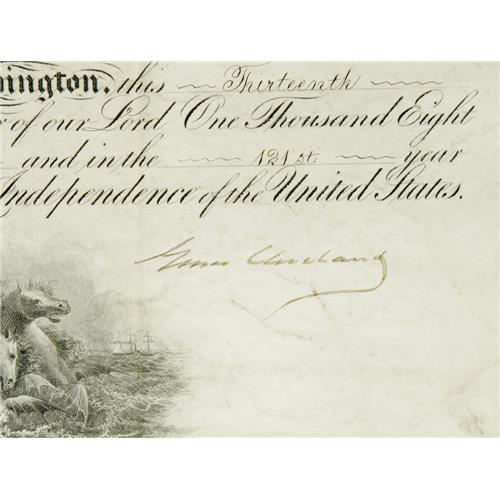 hington, this Thirteenth
of our Lord One Thousand Eight
and in the 121st. year
Independence of the United States.
Grover Cleveland